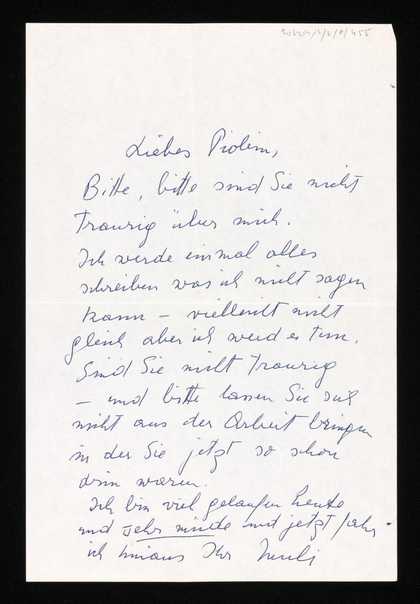 Liebes Piolem,
Bitte, bitte sind Sie nicht
traurig über mich.
Ich werde einmal alles
schreiben was ich nicht sagen
kann – vielleicht nicht
gleich aber ich werd es tun.
Sind Sie nicht traurig
– und bitte lassen Sie sich
nicht aus der Arbeit bringen
in der Sie jetzt so schon
drin waren.
Ich bin viel gelaufen heute
und sehr müde und jetzt fahr
ich hinaus Ihr